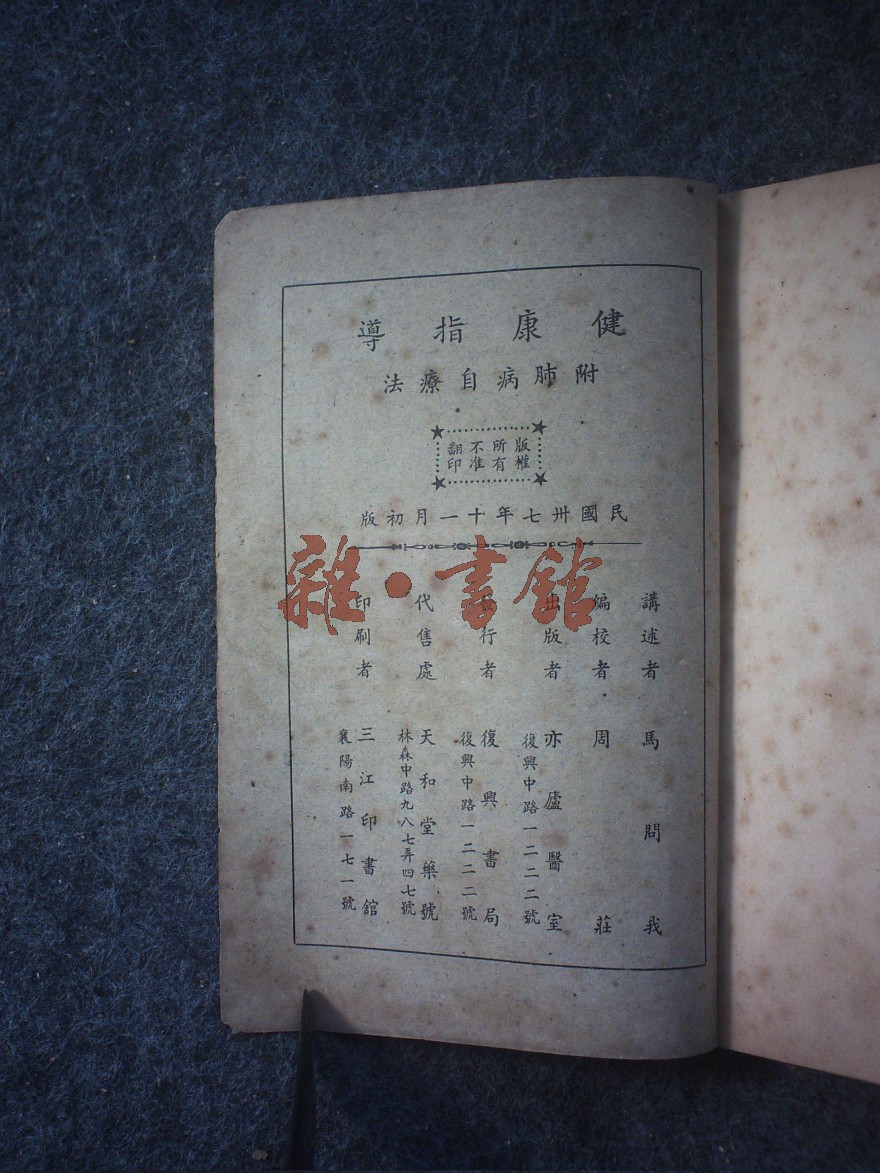 健康指導
附肺病自療法
版權所有不准翻印
民國卅七年十一月初版
講述者 馬問我
編校者 周莊
出版者 亦廬醫室
復興中路一二二二號
發行者 復興書局
復興中路一二二二號
代售處 天和堂藥號
林森中路九八七弄四七號
印刷者 三江印書館
襄陽南路一七一號
雜·書館